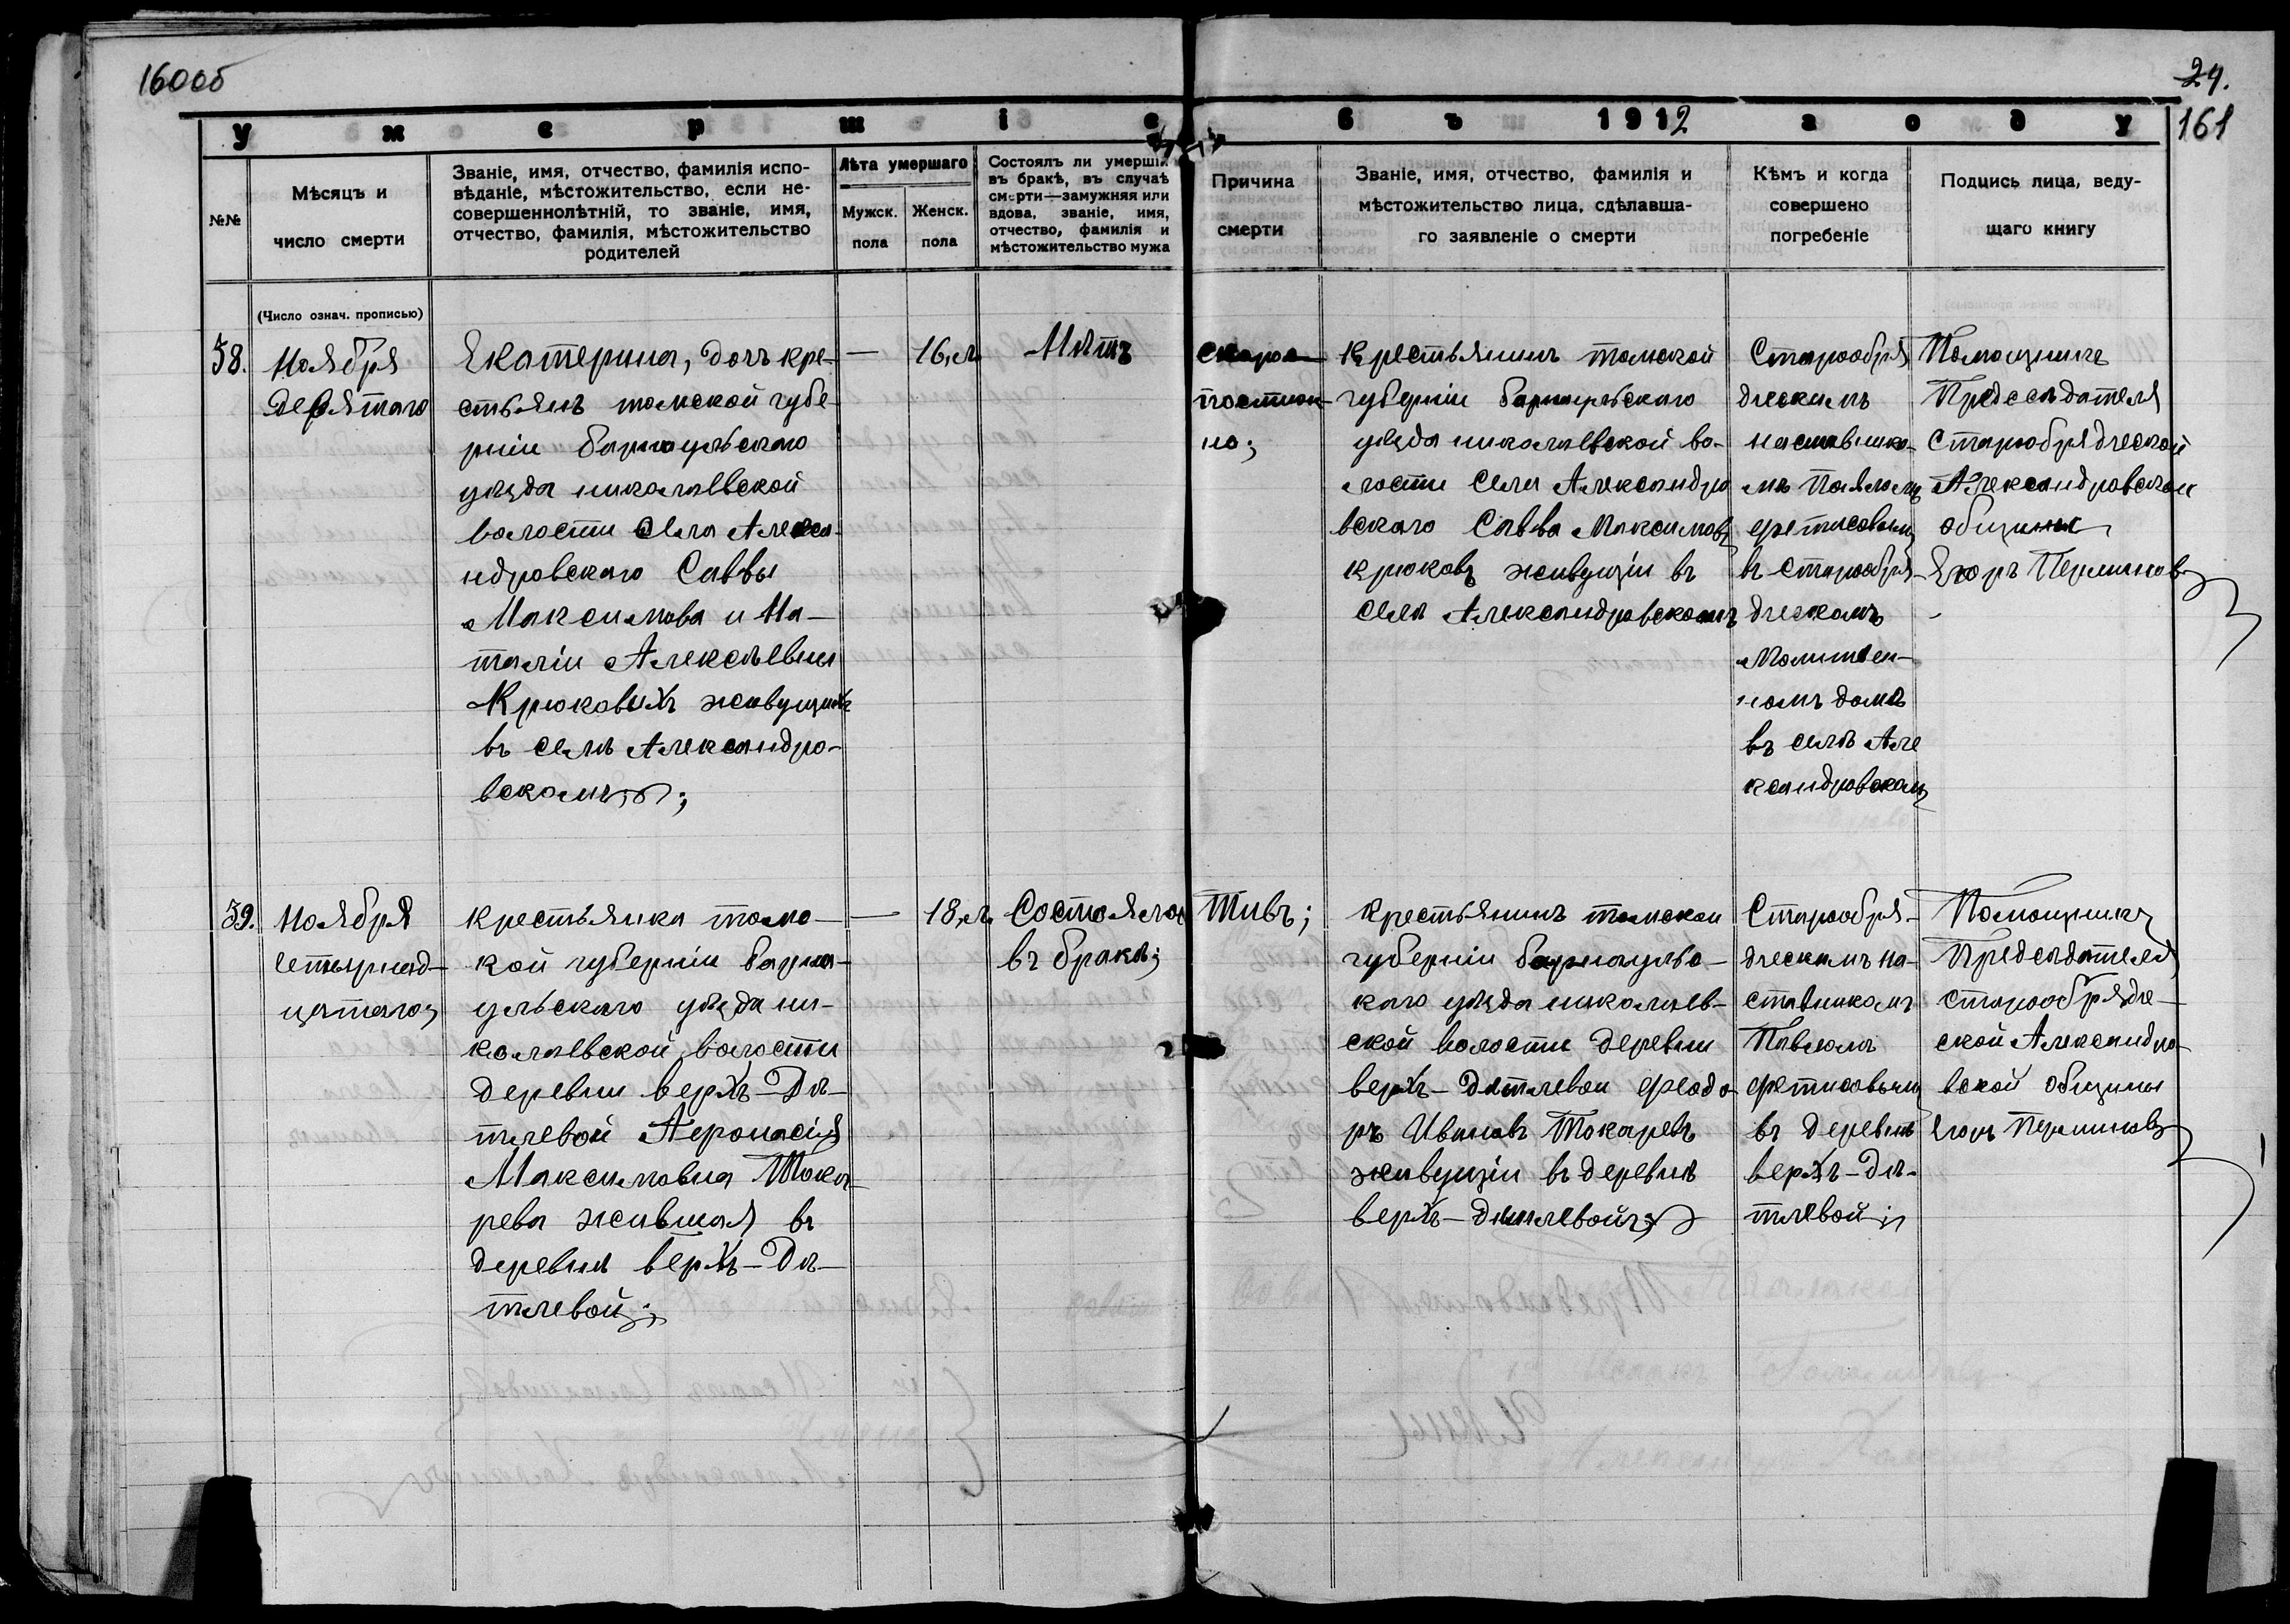 160об
24.
161
Умершіе въ 1912 году
№№
Мѣсяцъ и
число смерти
Званіе, имя, отчество, фамилія испо-
вѣданіе, мѣстожительство, если не-
совершеннолѣтній, то званіе, имя,
отчество, фамилія, мѣстожительство
родителей
Лѣта умершаго
Мужск.
пола
Женск.
пола
Состоялъ ли умершій
въ бракѣ, въ случаѣ
смерти—замужняя или
вдова, званіе, имя,
отчество, фамилія и
мѣстожительство мужа
Причина
смерти
Званіе, имя, отчество, фамилія и
мѣстожительство лица, сдѣлавша-
го заявленіе о смерти
Кѣмъ и когда
совершено
погребеніе
Подпись лица, веду-
щаго книгу
(Число означ. прописью)
38.
Ноября
девятаго
Екатерина, дочъ кре-
стьянъ томской губе-
рніи барнаульскаго
уѣзда николаевской
волости села Алекса-
ндровскаго Саввы
Максимова и На-
таліи Алексѣевны
Крюковыхъ живущихъ
въ селѣ Александро-
вскомъ;
—
16,л
Нѣтъ
скоро-
постиж-
но;
Крестьянинъ томской
губерніи барнаульскаго
уѣзда николаевской во-
лости села Александро
вскаго Савва Максимовъ
крюковъ живущіи въ
селѣ Александровскомъ
Старообря
дческимъ
наставнико-
мъ Павломъ
фетисовымъ
въ старообря-
дческомъ
Молитвен-
номъ домѣ
въ селѣ Але
ксандровскомъ
Помощникъ
Предсѣдателя
старообрядческой
Александровской
общины
Егоръ Перминовъ
39.
Ноября
четырнад-
цатаго
крестьянка томс-
кой губерніи барна-
ульскаго уѣзда ни-
колаевской волости
деревни верхъ-Дя-
тлевой Афонасія
Максимовна Тока-
рева жившая въ
деревнѣ верхъ-Дя-
тлевой;
—
18,л
Состояла
въ бракѣ;
Тивъ;
Крестьянинъ томской
губерніи барнаульс-
каго уѣзда николаев-
ской волости деревни
верхъ-дятлевои феодо-
ръ Ивановъ Токаревъ
живущіи въ деревнѣ
верхъ-дятлевой;
Старообря-
дческимъ на-
ставникомъ
Павломъ
фетисовымъ
въ деревнѣ
верхъ-дя-
тлевой;
Помощникъ
Предсѣдателя
старообрядче-
ской Александро-
вской общины
Егоръ Перминовъ